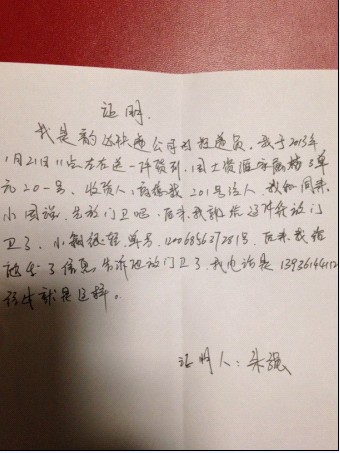 证明
我是韵达快递公司的投递员，我于2013年
1月21日11点左右送一件货到，国土资源家属楼3单
元201号，收货人：            201没人，我和同来
小周说，先放门卫吧，后来我就给这件货放门
卫了，小        单号，1200685627281号，后来我给
她发了信息，告诉她放门卫了，我电话是
        就是这样。
证明人：朱强